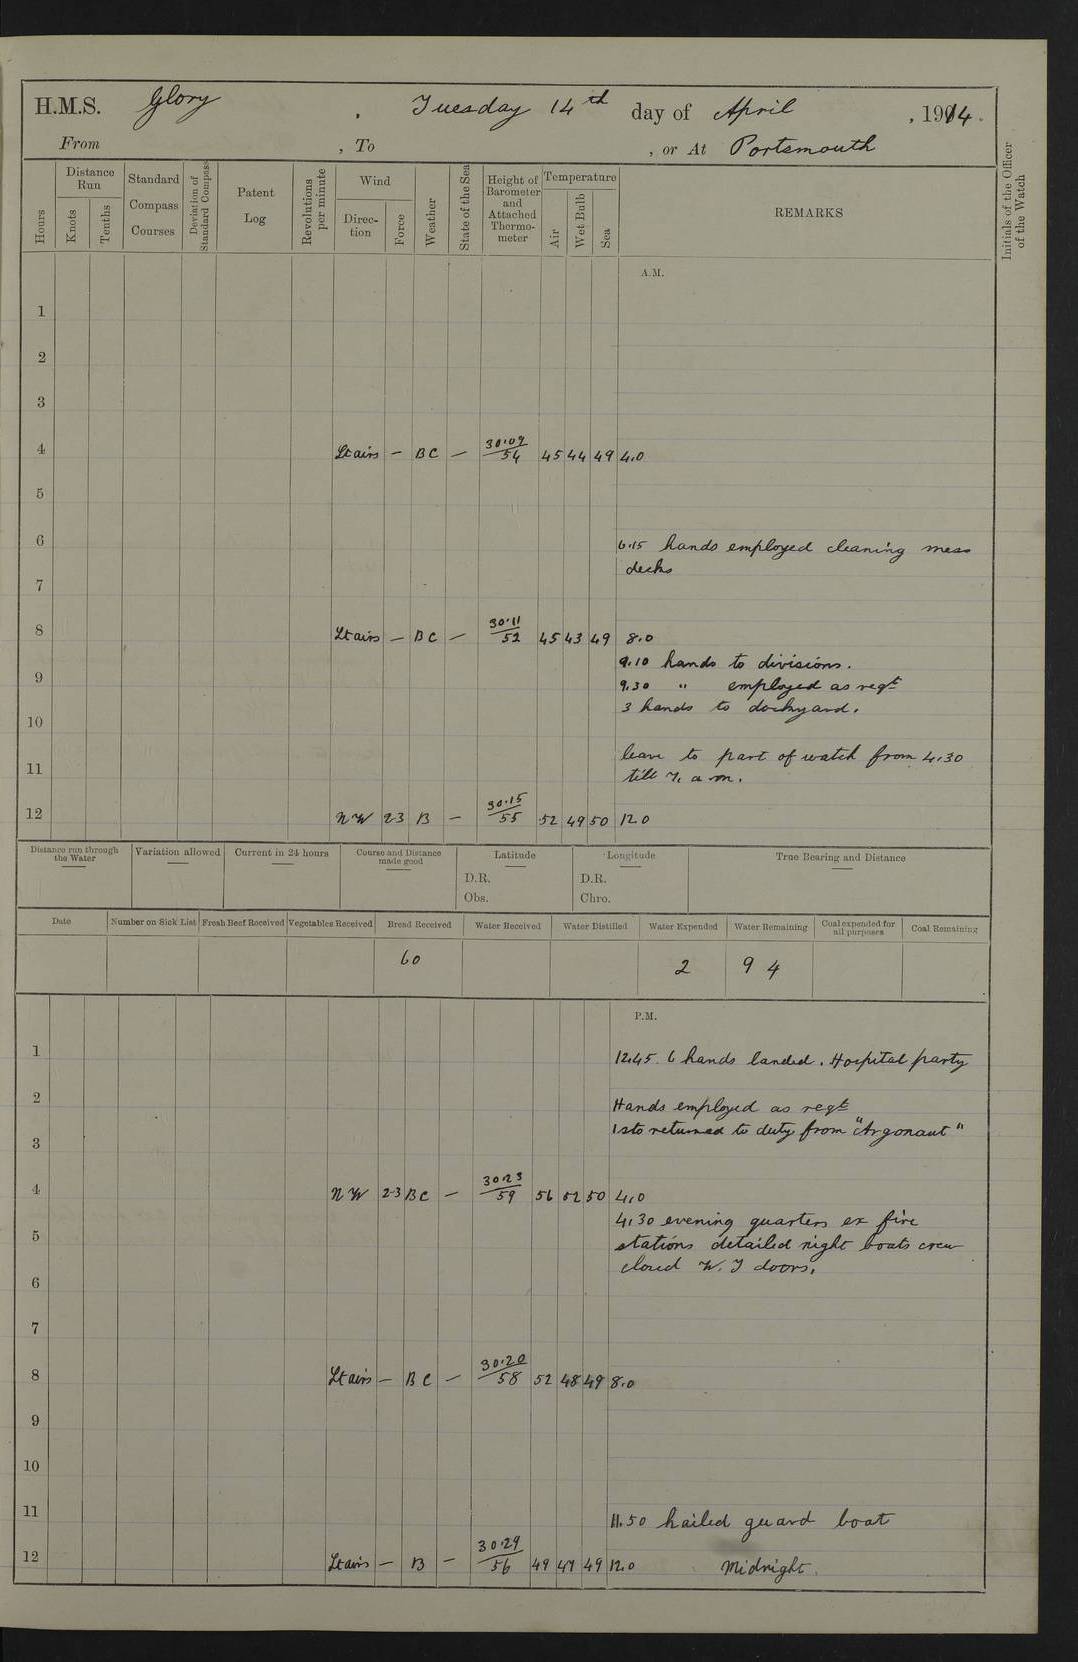 H.M.S. Glory , Tuesday 14th day of April , 1914.
From , To , or At Portsmouth
Hours
Distance Run
Knots
Tenths
Standard Compass Courses
Deviation of Standard Compass
Patent Log
Revolutions per minute
Wind
Direction
Force
Weather
State of the Sea
Height of Barometer and Attached Thermometer
Temperature
Air
Wet Bulb
Sea
REMARKS
Initials of the Officer of the Watch
A.M.
1
2
3
4 Lt airs — BC — 30.09/54 45 44 49 4.0
5
6 6.15 hands employed cleaning mess
decks
7
8 Lt airs — BC — 30.11/52 45 43 49 8.0
9.10 hands to divisions.
9 9.30 " employed as reqt
3 hands to dockyard.
10
leave to part of watch from 4.30
11 till 7. a.m.
12 NW 2-3 B — 30.15/55 52 49 50 12.0
Distance run through the Water
Variation allowed
Current in 24 hours
Course and Distance made good
Latitude
D.R.
Obs.
Longitude
D.R.
Chro.
True Bearing and Distance
Date
Number on Sick List
Fresh Beef Received
Vegetables Received
Bread Received
Water Received
Water Distilled
Water Expended
Water Remaining
Coal expended for all purposes
Coal Remaining
60 2 94
P.M.
1 12.45. 6 hands landed. Hospital party
2 Hands employed as reqt
1 sto returned to duty from "Argonaut"
3
4 NW 2-3 BC — 30.23/59 56 52 50 4.0
4.30 evening quarters ex fire
5 stations detailed night boats crew
closed W.T doors.
6
7
8 Lt airs — BC — 30.20/58 52 48 49 8.0
9
10
11 11.50 hailed guard boat
12 Lt airs — B — 30.29/56 49 47 49 12.0 Midnight.